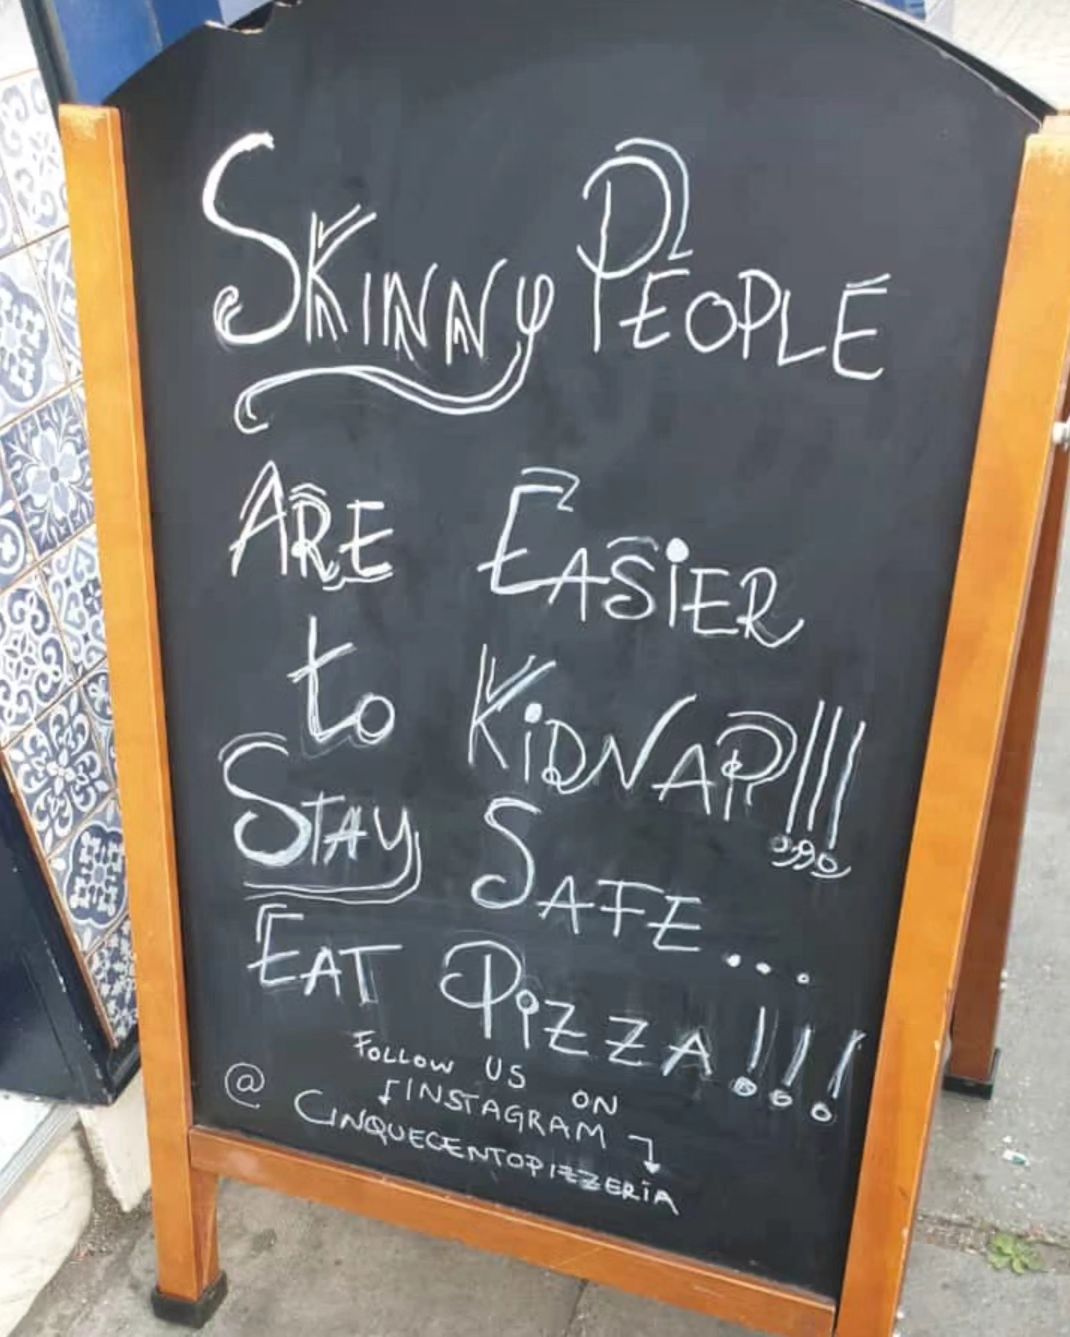 SKINNY PEOPLE
ARE EASIER
to KiDNAP!!!
STAY SAFE...
EAT PiZZA!!!
FOLLOW US ON
INSTAGRAM
@ CINQUECENTOPIZZERiA